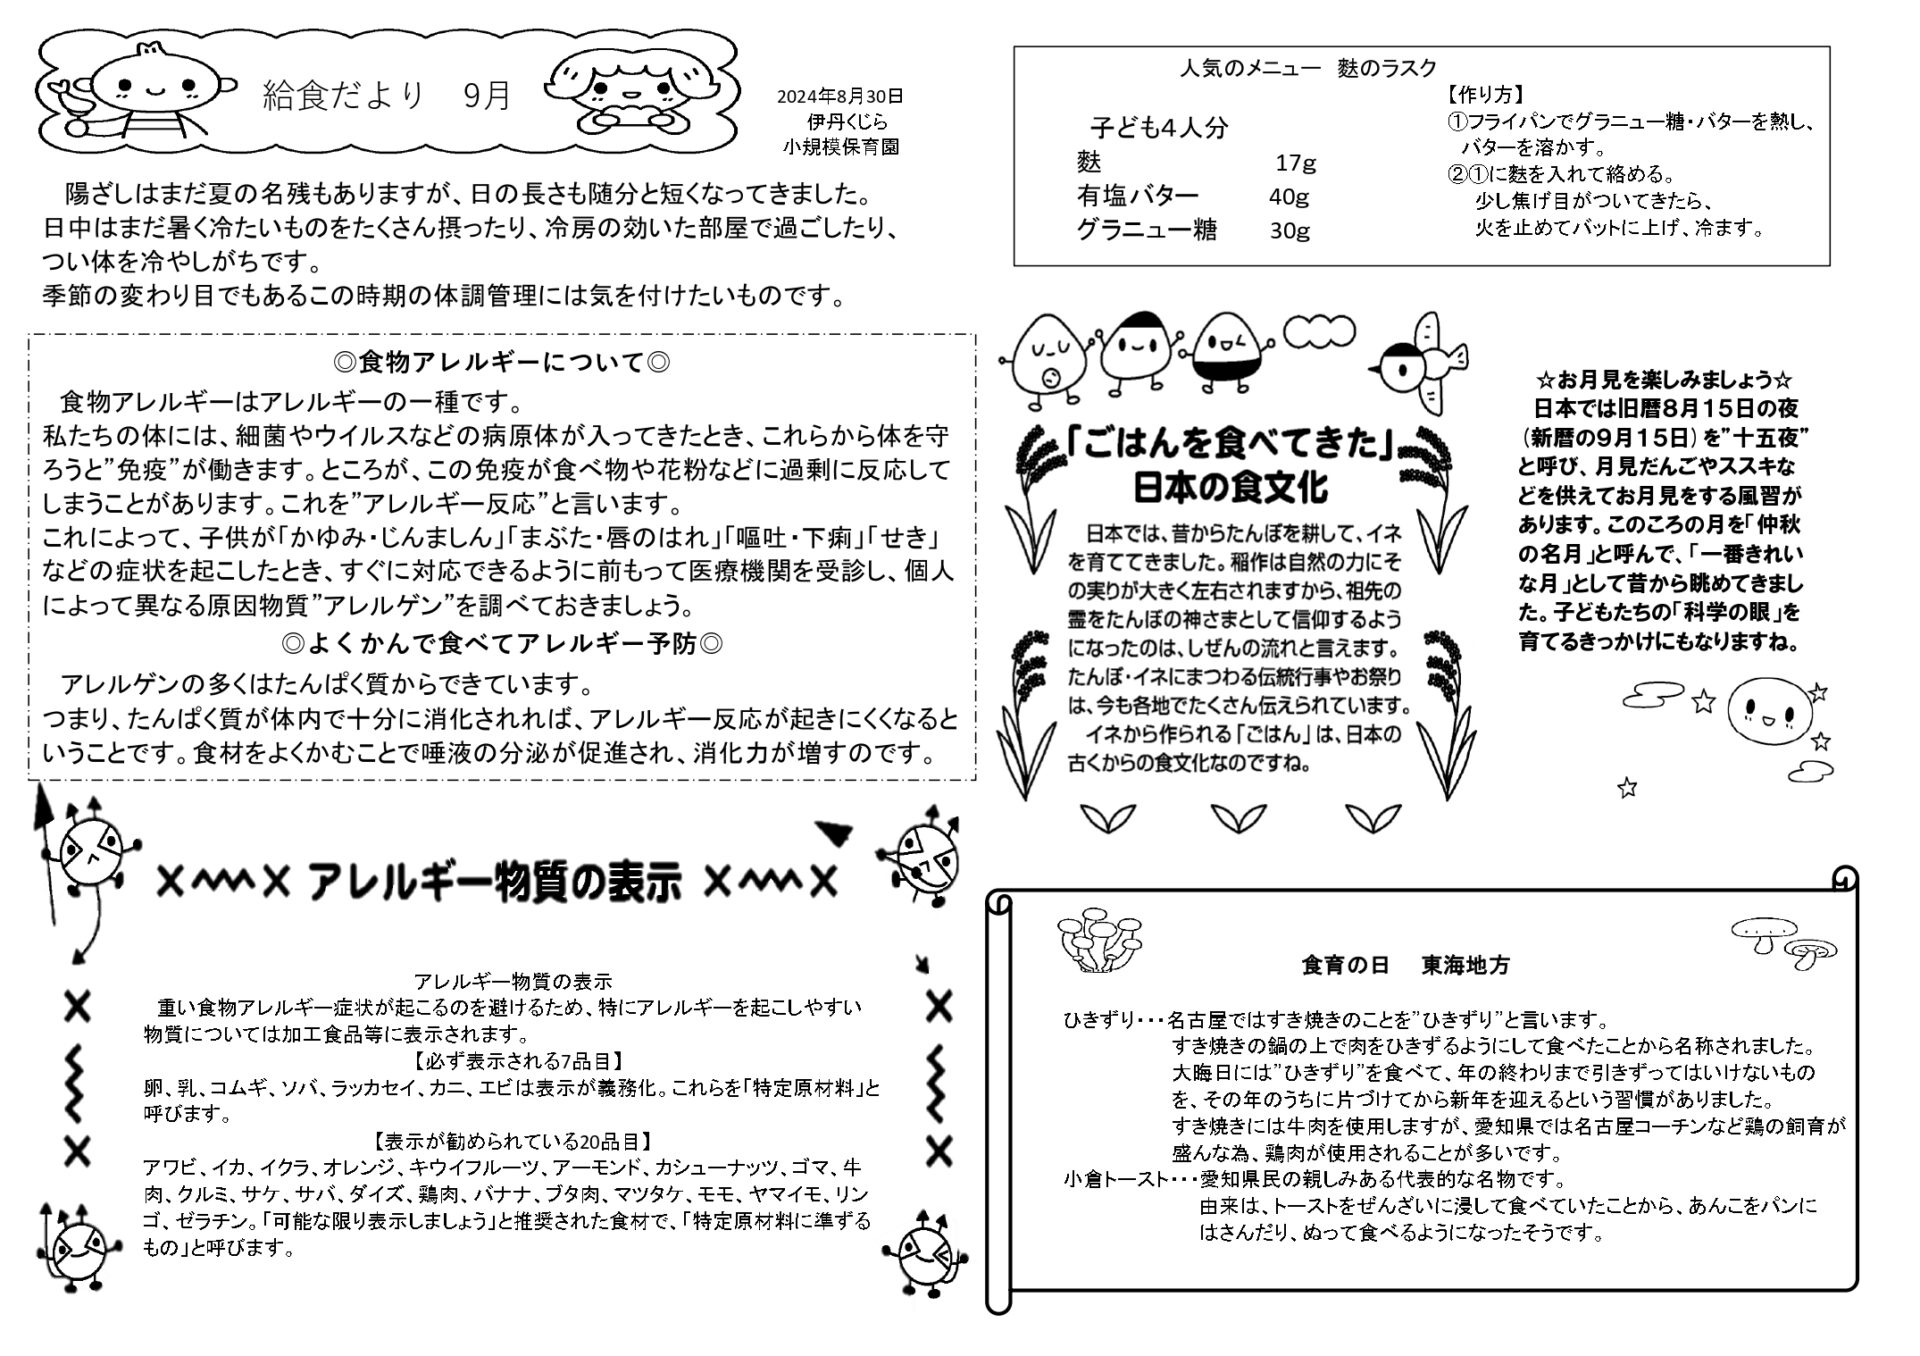 給食だより　9月
2024年8月30日
伊丹くじら
小規模保育園
陽ざしはまだ夏の名残もありますが、日の長さも随分と短くなってきました。
日中はまだ暑く冷たいものをたくさん摂ったり、冷房の効いた部屋で過ごしたり、
つい体を冷やしがちです。
季節の変わり目でもあるこの時期の体調管理には気を付けたいものです。
◎食物アレルギーについて◎
食物アレルギーはアレルギーの一種です。
私たちの体には、細菌やウイルスなどの病原体が入ってきたとき、これらから体を守
ろうと”免疫”が働きます。ところが、この免疫が食べ物や花粉などに過剰に反応して
しまうことがあります。これを”アレルギー反応”と言います。
これによって、子供が「かゆみ・じんましん」「まぶた・唇のはれ」「嘔吐・下痢」「せき」
などの症状を起こしたとき、すぐに対応できるように前もって医療機関を受診し、個人
によって異なる原因物質”アレルゲン”を調べておきましょう。
◎よくかんで食べてアレルギー予防◎
アレルゲンの多くはたんぱく質からできています。
つまり、たんぱく質が体内で十分に消化されれば、アレルギー反応が起きにくくなると
いうことです。食材をよくかむことで唾液の分泌が促進され、消化力が増すのです。
アレルギー物質の表示
アレルギー物質の表示
重い食物アレルギー症状が起こるのを避けるため、特にアレルギーを起こしやすい
物質については加工食品等に表示されます。
【必ず表示される7品目】
卵、乳、コムギ、ソバ、ラッカセイ、カニ、エビは表示が義務化。これらを「特定原材料」と
呼びます。
【表示が勧められている20品目】
アワビ、イカ、イクラ、オレンジ、キウイフルーツ、アーモンド、カシューナッツ、ゴマ、牛
肉、クルミ、サケ、サバ、ダイズ、鶏肉、バナナ、ブタ肉、マツタケ、モモ、ヤマイモ、リン
ゴ、ゼラチン。「可能な限り表示しましょう」と推奨された食材で、「特定原材料に準ずる
もの」と呼びます。
人気のメニュー　麩のラスク
子ども4人分
麩　17g
有塩バター　40g
グラニュー糖　30g
【作り方】
①フライパンでグラニュー糖・バターを熱し、
バターを溶かす。
②①に麩を入れて絡める。
少し焦げ目がついてきたら、
火を止めてバットに上げ、冷ます。
「ごはんを食べてきた」
日本の食文化
日本では、昔からたんぼを耕して、イネ
を育ててきました。稲作は自然の力にそ
の実りが大きく左右されますから、祖先の
霊をたんぼの神さまとして信仰するよう
になったのは、しぜんの流れと言えます。
たんぼ・イネにまつわる伝統行事やお祭り
は、今も各地でたくさん伝えられています。
イネから作られる「ごはん」は、日本の
古くからの食文化なのですね。
☆お月見を楽しみましょう☆
日本では旧暦8月15日の夜
(新暦の9月15日)を”十五夜”
と呼び、月見だんごやススキな
どを供えてお月見をする風習が
あります。このころの月を「仲秋
の名月」と呼んで、「一番きれい
な月」として昔から眺めてきまし
た。子どもたちの「科学の眼」を
育てるきっかけにもなりますね。
食育の日　東海地方
ひきずり・・・名古屋ではすき焼きのことを”ひきずり”と言います。
すき焼きの鍋の上で肉をひきずるようにして食べたことから名称されました。
大晦日には”ひきずり”を食べて、年の終わりまで引きずってはいけないもの
を、その年のうちに片づけてから新年を迎えるという習慣がありました。
すき焼きには牛肉を使用しますが、愛知県では名古屋コーチンなど鶏の飼育が
盛んな為、鶏肉が使用されることが多いです。
小倉トースト・・・愛知県民の親しみある代表的な名物です。
由来は、トーストをぜんざいに浸して食べていたことから、あんこをパンに
はさんだり、ぬって食べるようになったそうです。